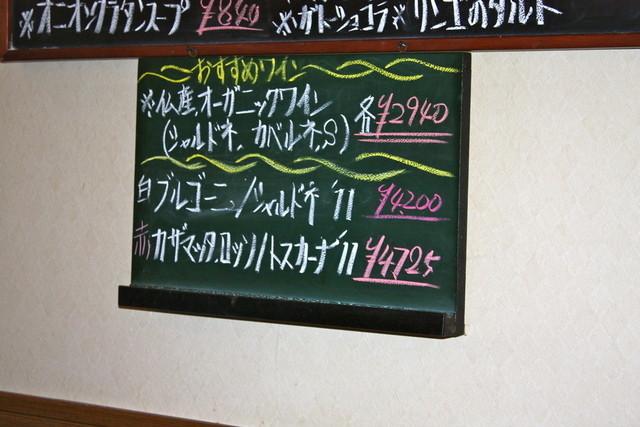 ※オニオングラタンスープ ¥840 ※ガトーショコラ※リンゴのタルト
おすすめワイン
※仏産オーガニックワイン
(シャルドネ、カベルネ、S) 各¥2940
白ブルゴーニュ/シャルドネ '11 ¥4,200
赤カザマッタ、ロッソ/トスカーナ'11 ¥4725